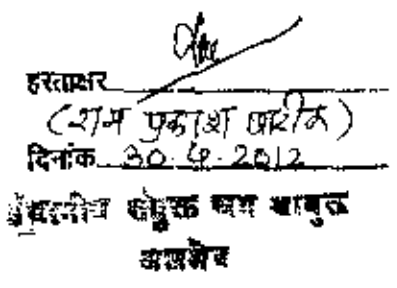 हस्ताक्षर
(राम प्रकाश पारीक)
दिनांक 30.4.2012
संयुक्त श्रम आयुक्त
अजमेर